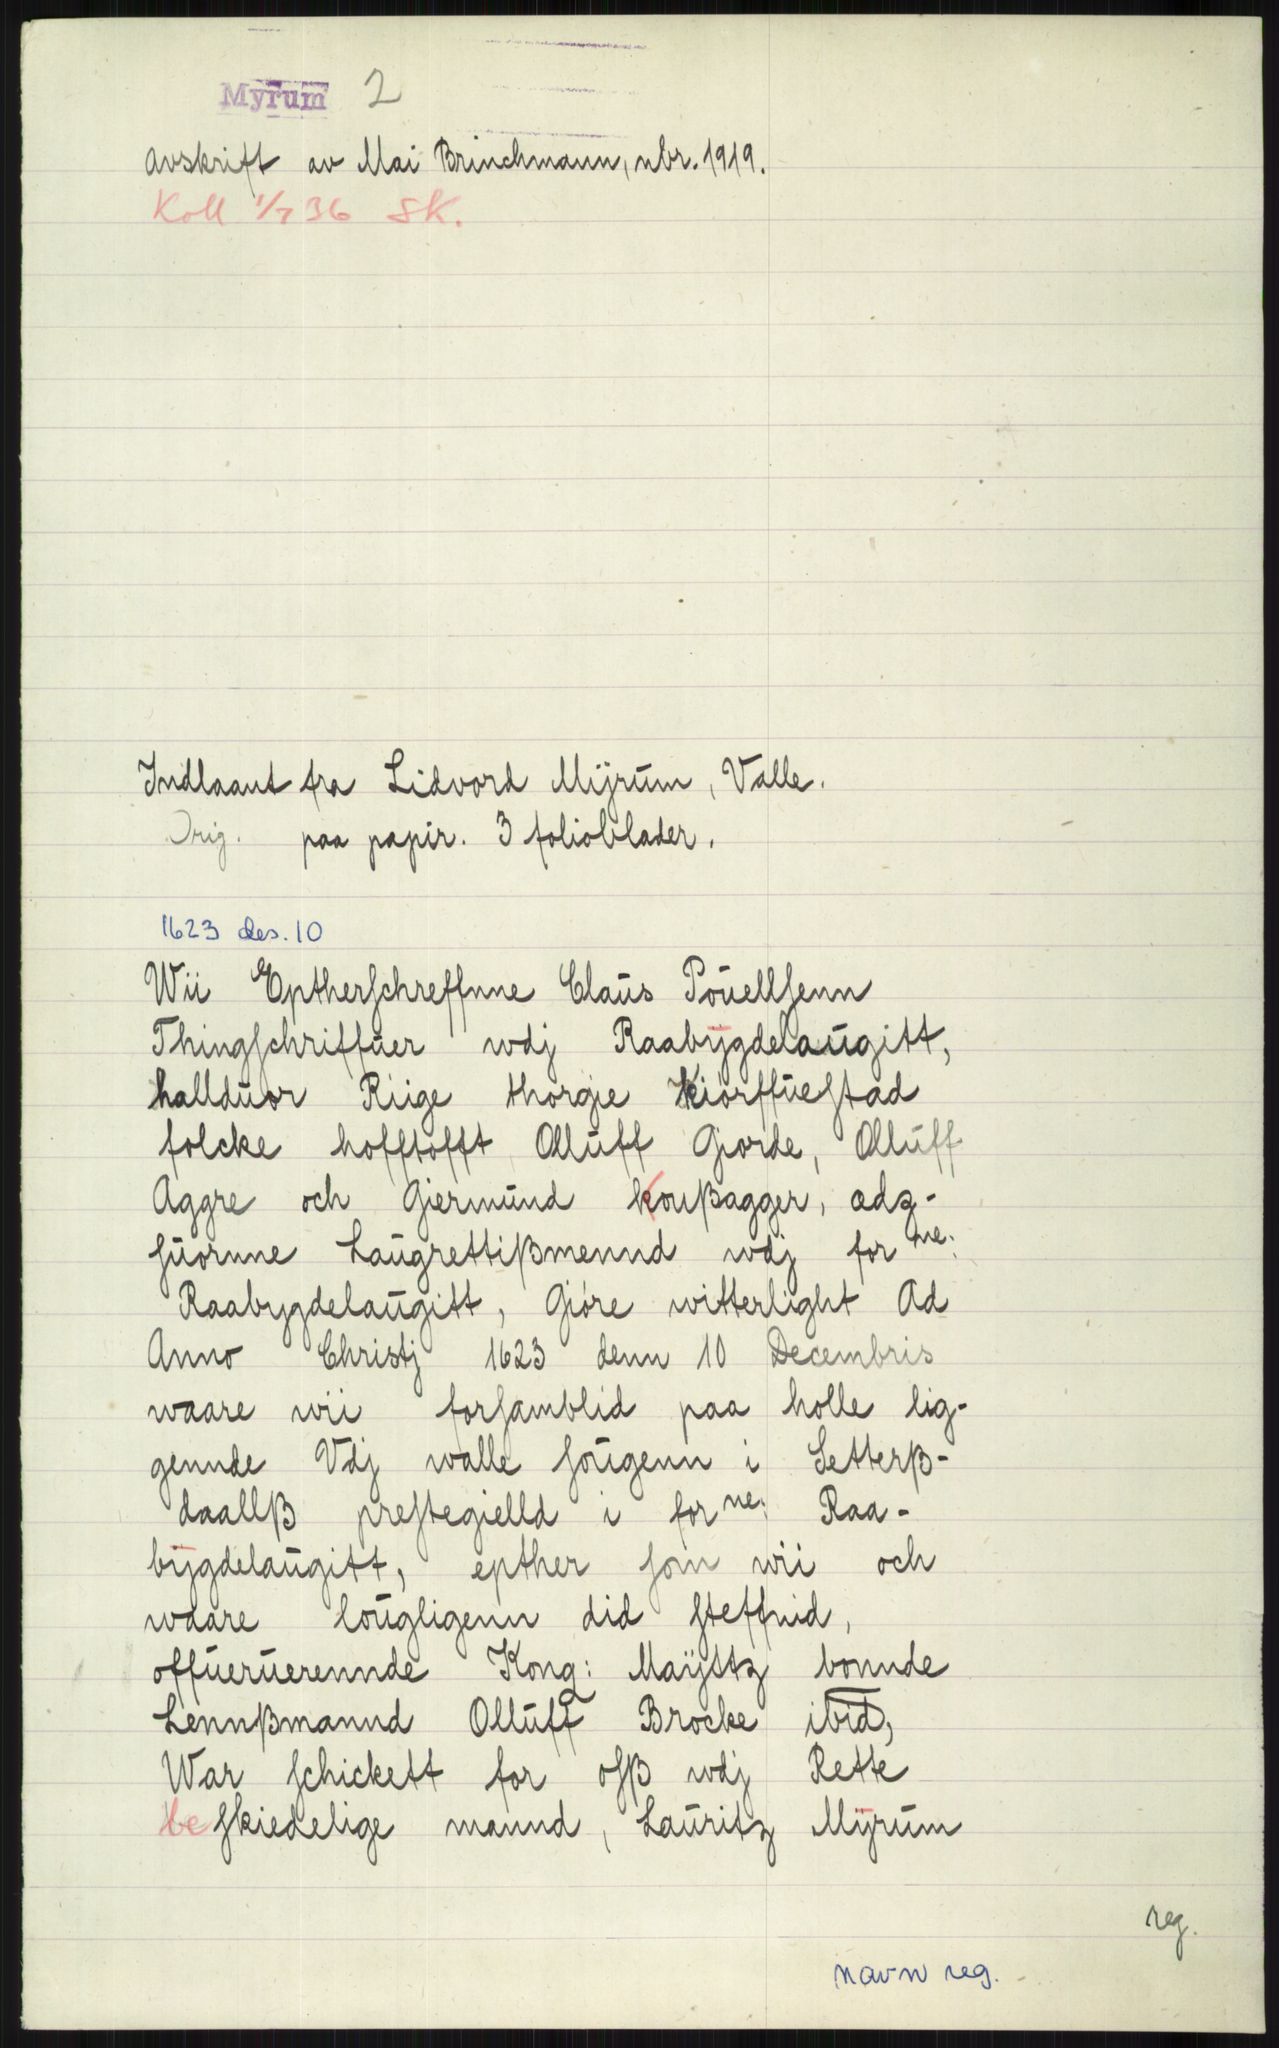 Myrum 2
Avskrift av Mai Brinchmann, nbr. 1919.
Koll 1/7 36 SK.
Indlaant fra Lidvord Mÿrum, Valle.
Orig. paa papir. 3 folioblader.
1623 des. 10
Wii Eptherschreffnne Claus Pouellsenn
Thingschriffuer wdj Raabÿgdelaugitt,
hallduor Riige thorgie Kiörffuestad
folcke hofftofft Olluff Giorde, Olluff
Aggre och Giermund koußagger, ædz-
suornne Laugrettißmennd wdj for ne:
Raabygdelaugitt, Giöre witterlight Ad
Anno Christj 1623 denn 10 Decembris
waare wii forsamblid paa holle lig-
gennde Vdj walle sougenn i Setterß-
daallß prestegielld i for ne: Raa-
bÿgdelaugitt, epther som wii och
waare lougligenn did steffnid,
offueruerennde Kong: Maÿsttz bonnde
Lennßmannd Olluff Brocke ibid,
War schickett for osß wdj Rette
beskiedelige mannd, Lauritz Mÿrum
reg.
navn reg.